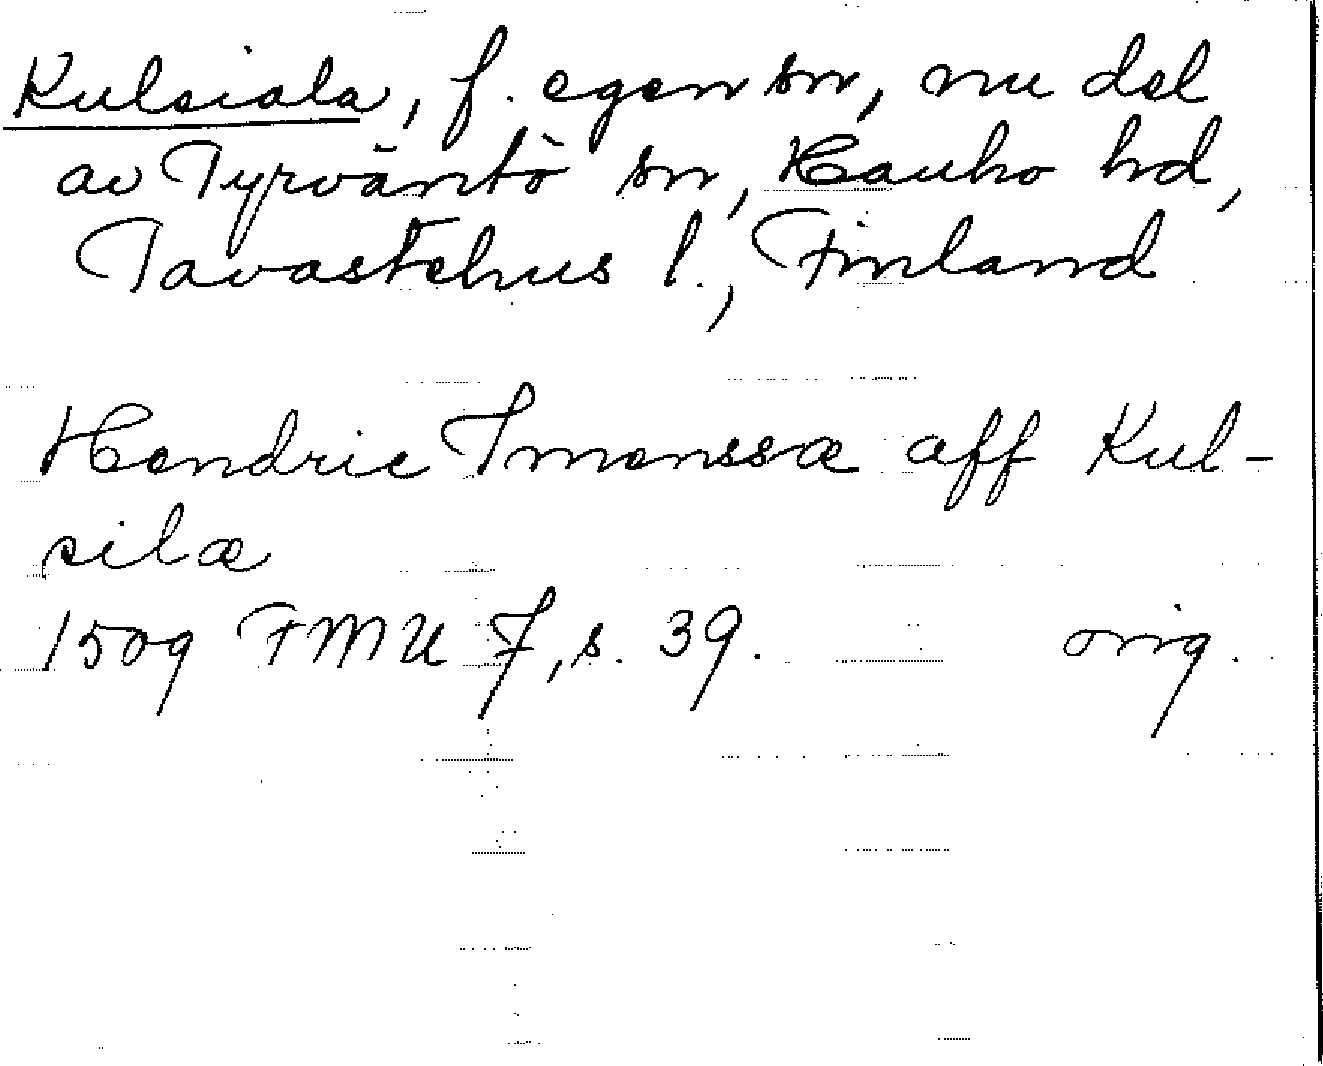 Kulsiala, f. egen sn, nu del
av Tyrväntö sn, Hauho hd,
Tavastehus l., Finland
Hendric Jmenssæ aff Kul-
silæ
1509 FMU 7, s. 39. orig.